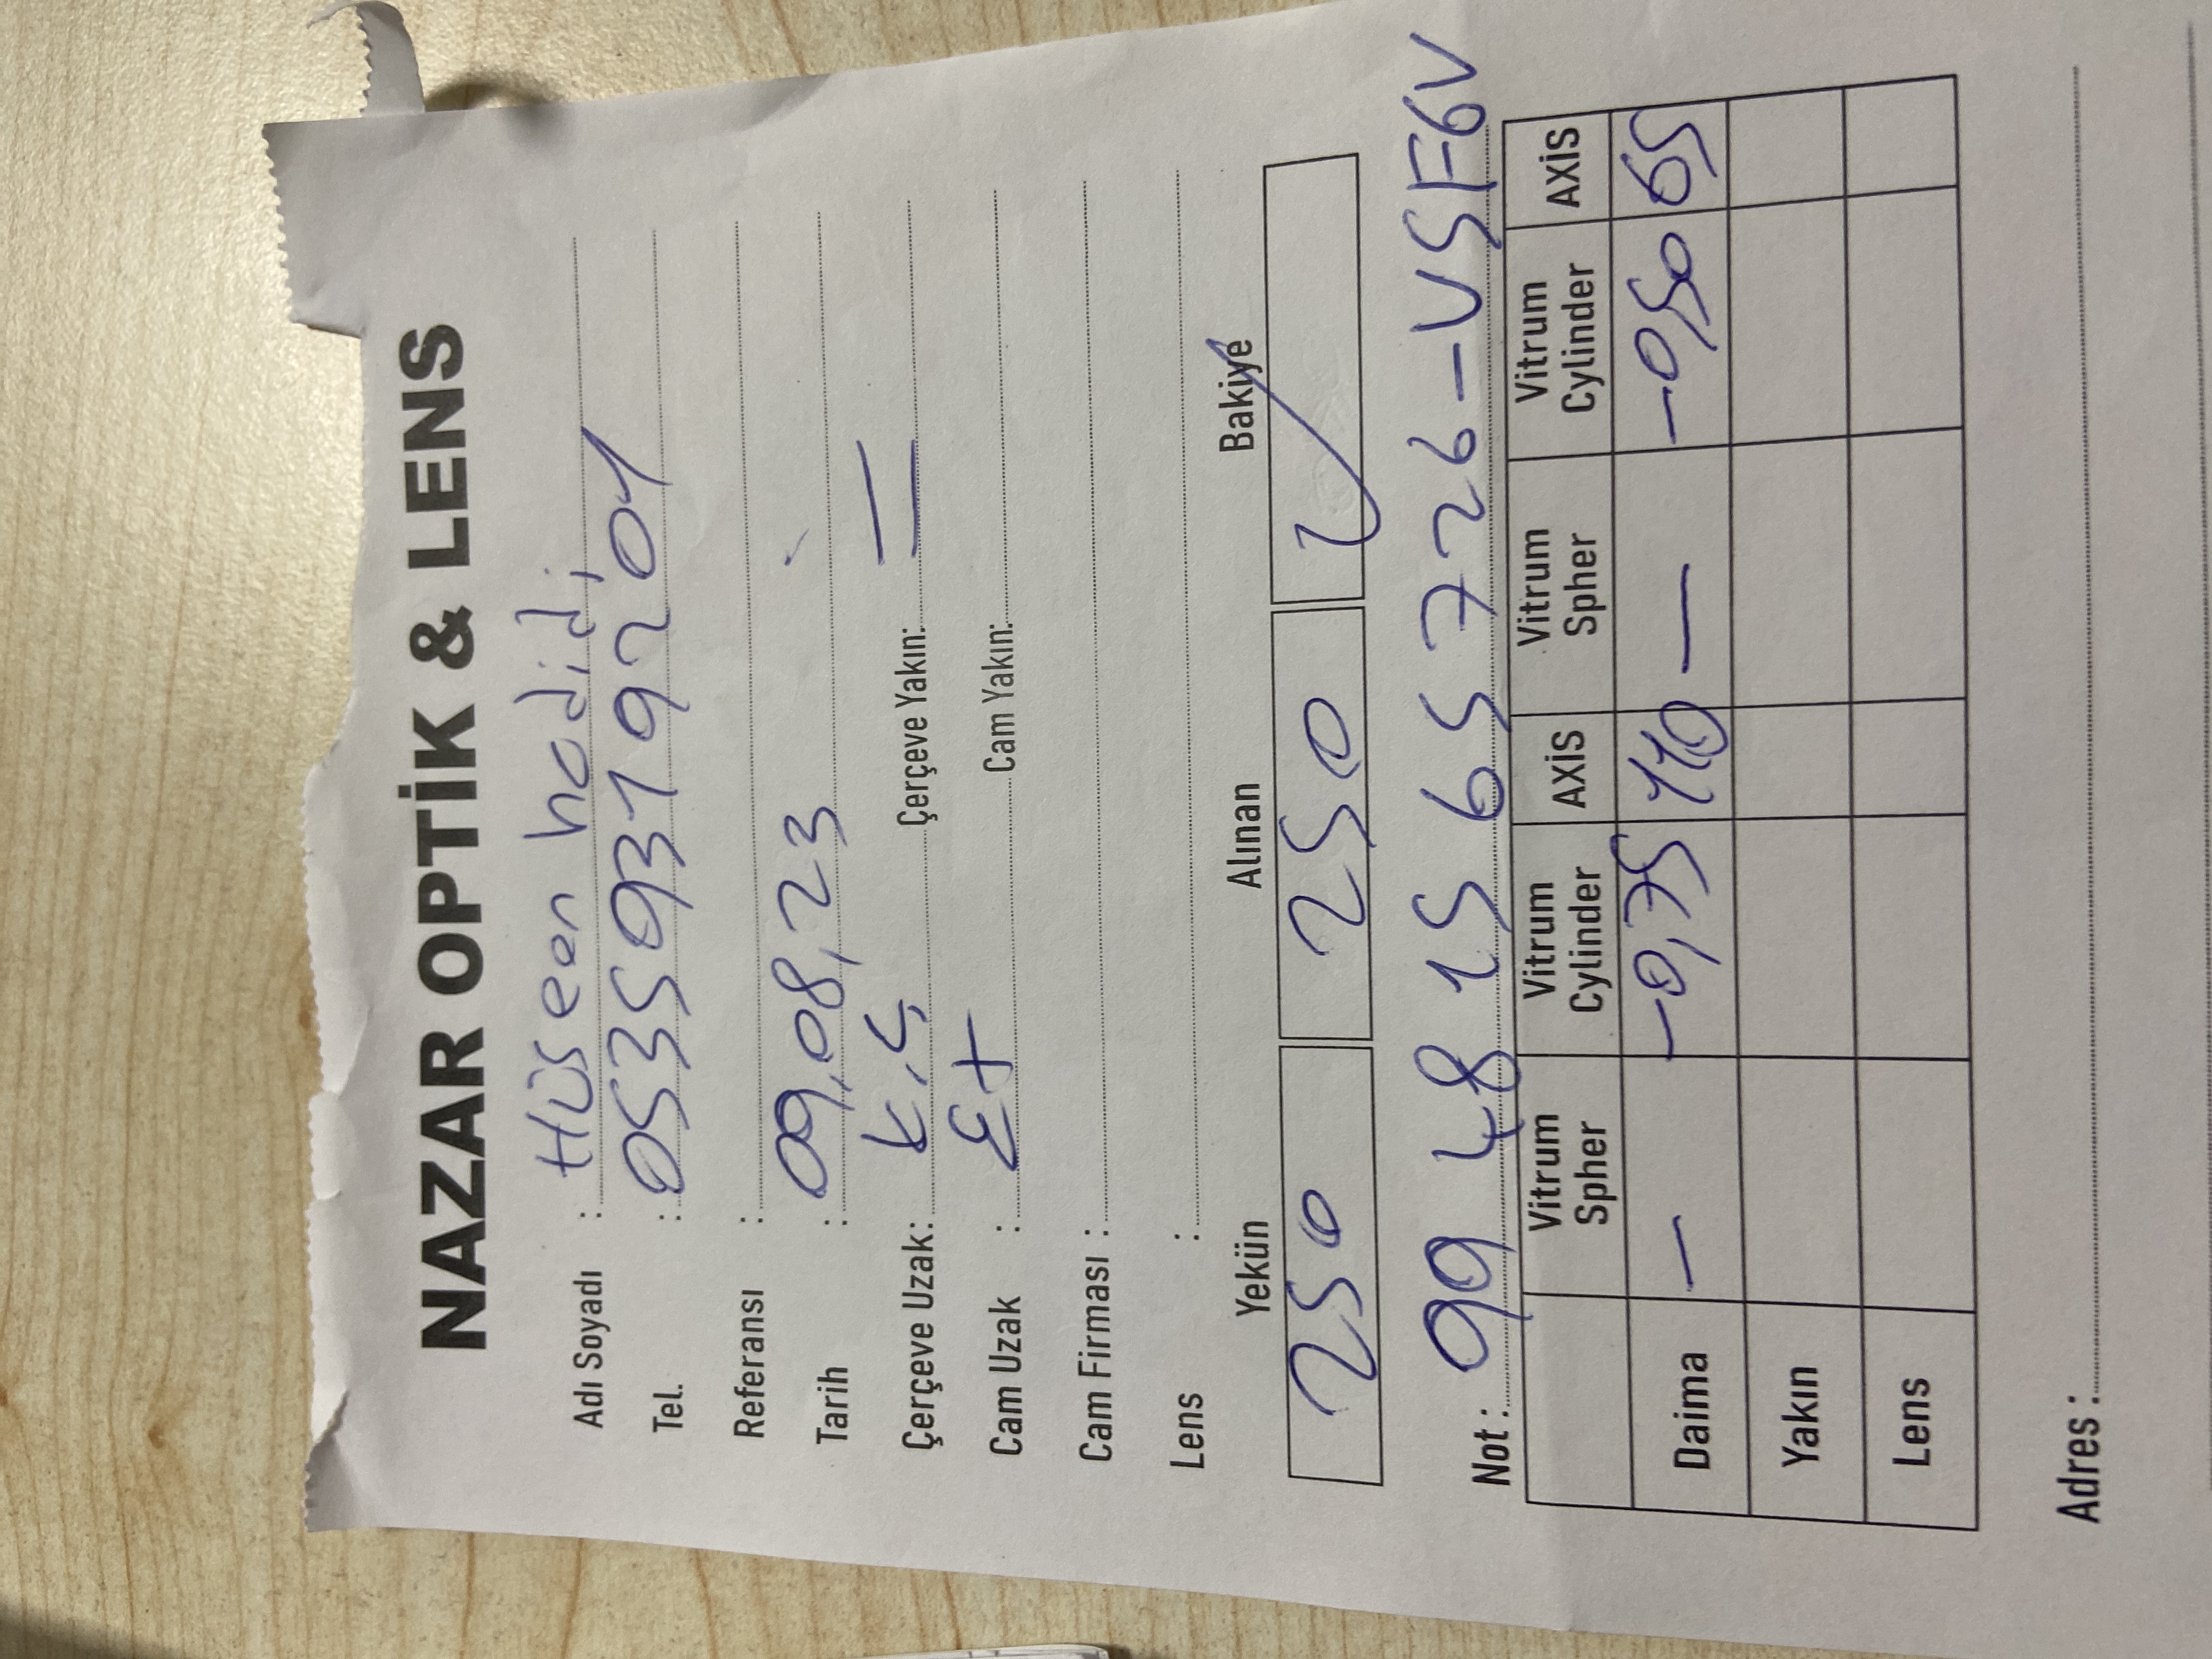 NAZAR OPTİK & LENS
Adı Soyadı : Hüseen hadidi
Tel. : 05359319201
Referansı :
Tarih : 09,08,23
Çerçeve Uzak: K.Ç Çerçeve Yakın: —
Cam Uzak : Ex Cam Yakın:
Cam Firması :
Lens :
Yekün Alınan Bakiye
250 250 ✓
Not : 99 48 15 65 726-VSF6V
Vitrum Spher Vitrum Cylinder AXİS Vitrum Spher Vitrum Cylinder AXİS
Daima — -0,75 110 — -0,50 65
Yakın
Lens
Adres :